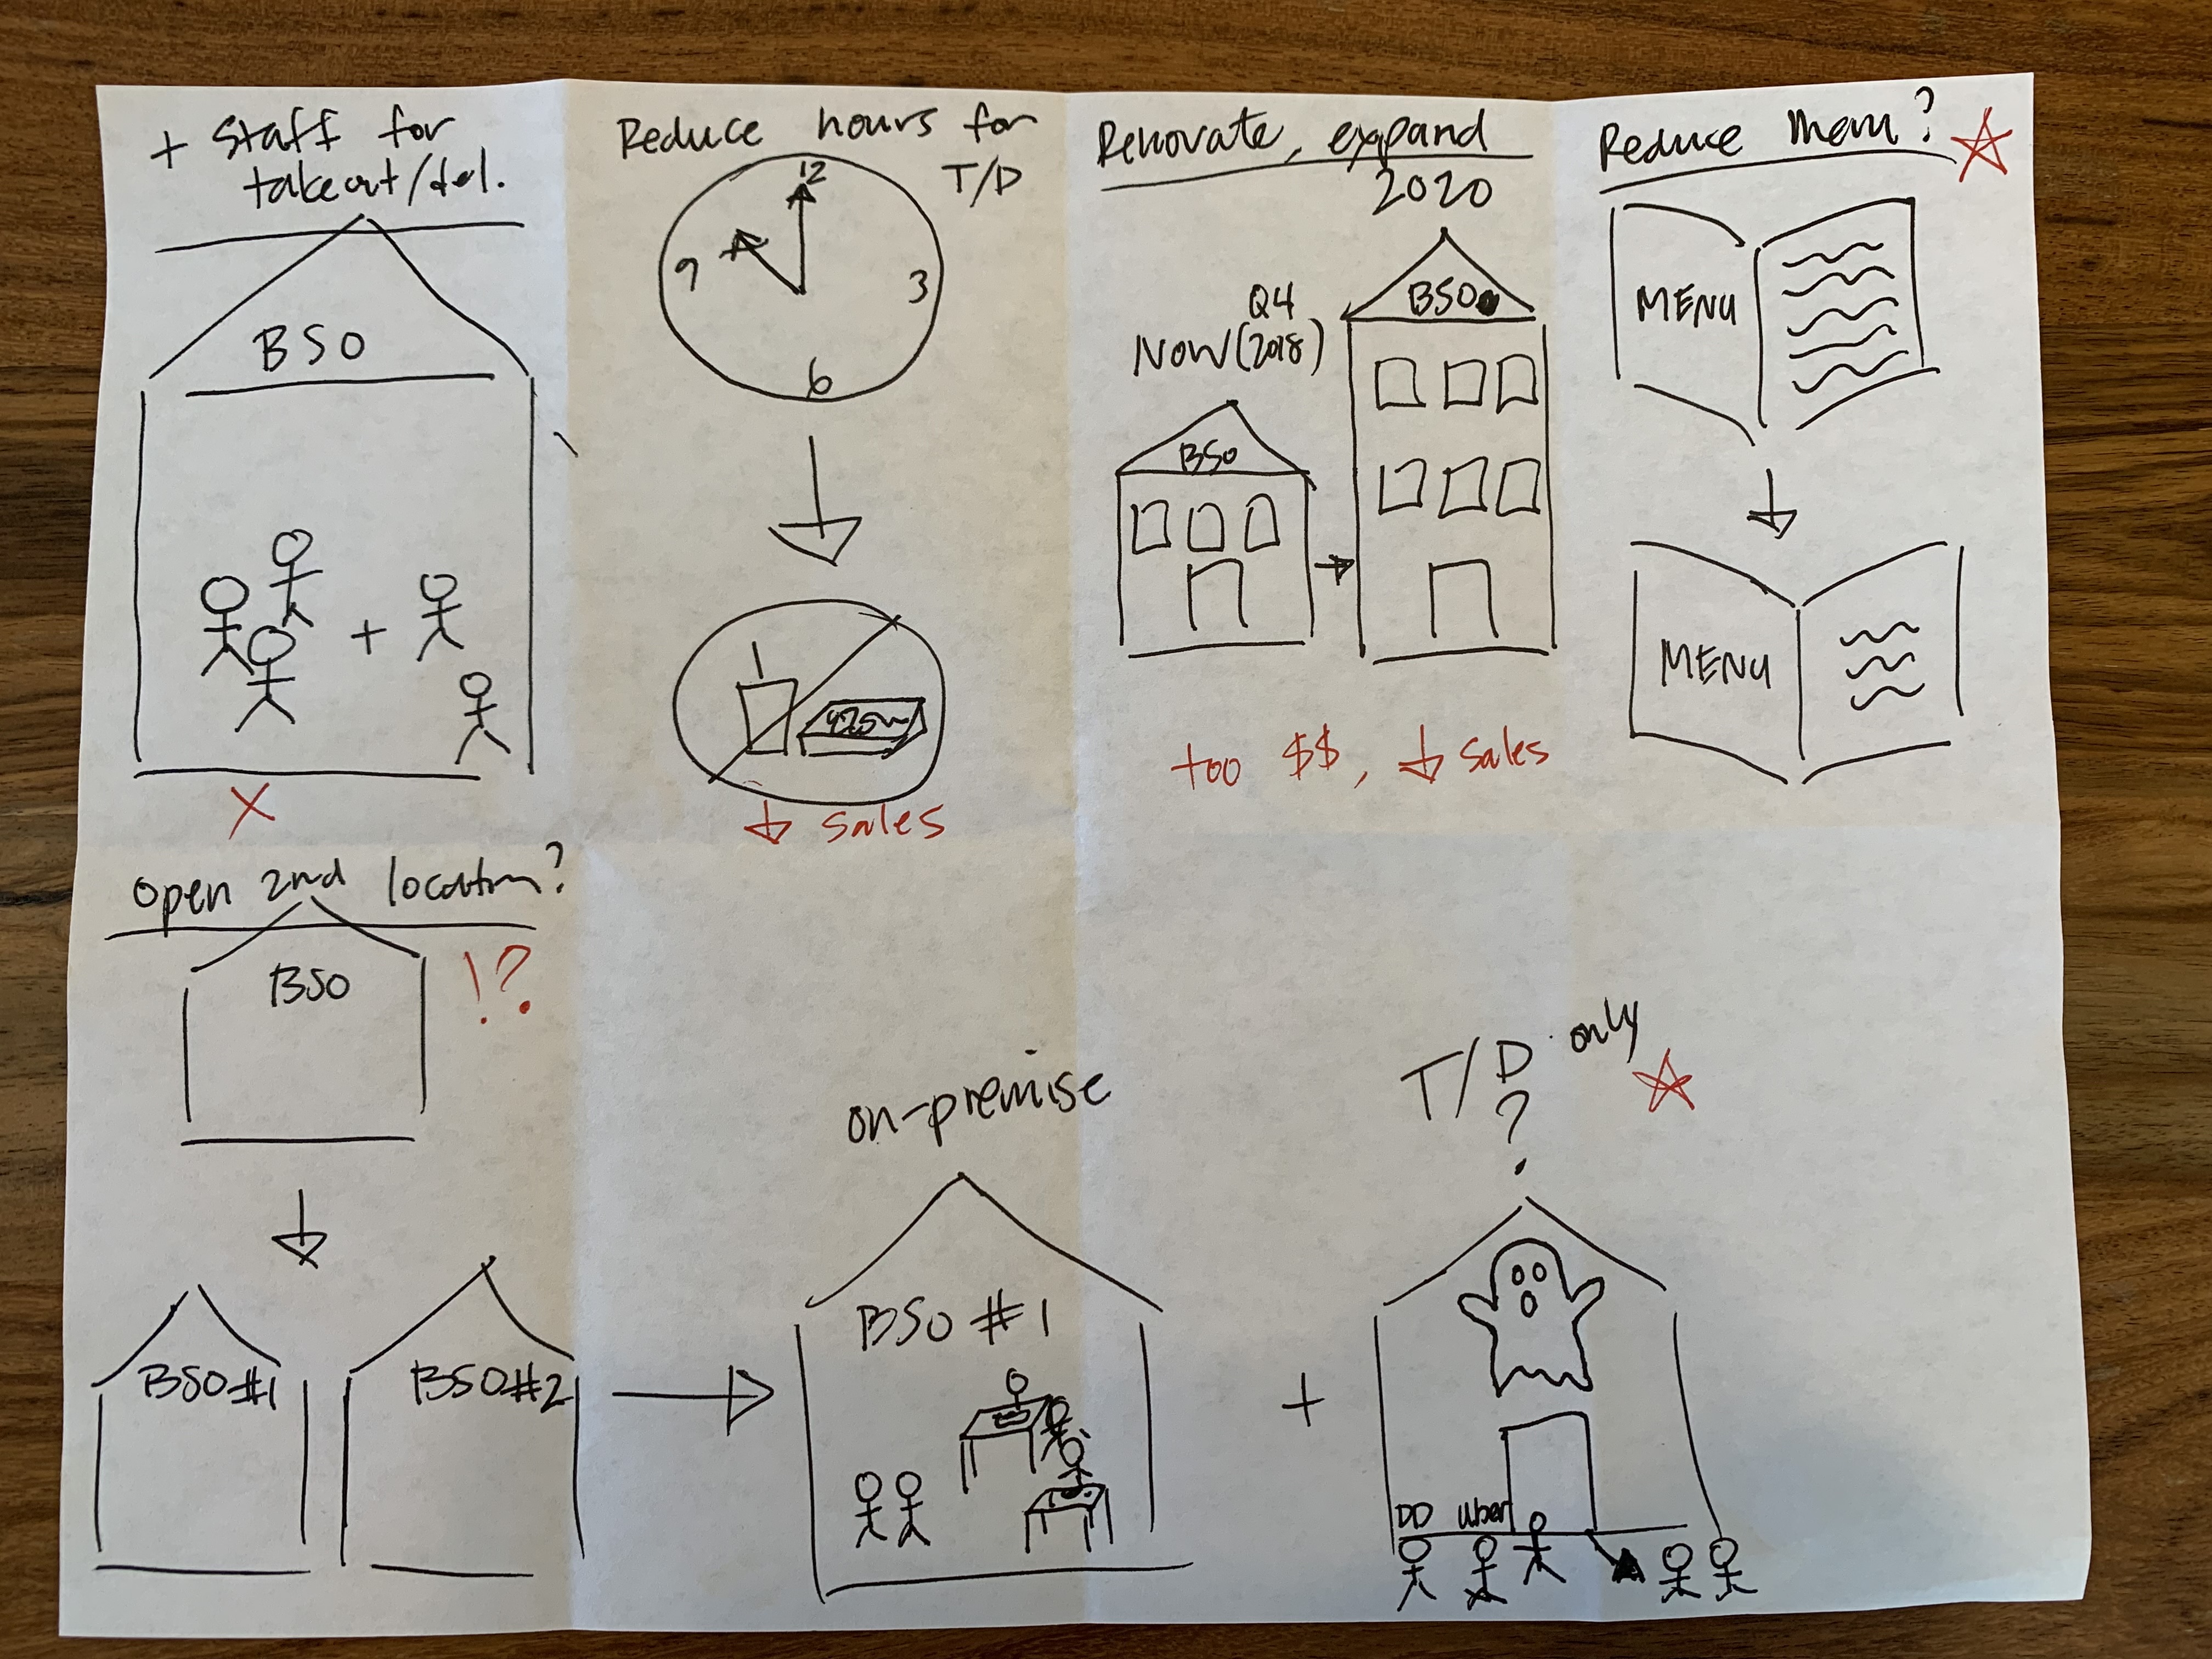 + Staff for
takeout/del.
BSO
X
Reduce hours for
T/D
12
9
3
6
↓ sales
Renovate, expand
2020
Q4
Now (2018)
BSO
BSO
too $$, ↓ sales
Reduce Menu?
MENU
MENU
Open 2nd location?
BSO
!?
BSO #1
BSO #2
on-premise
BSO #1
+
T/D only
?
DD Uber